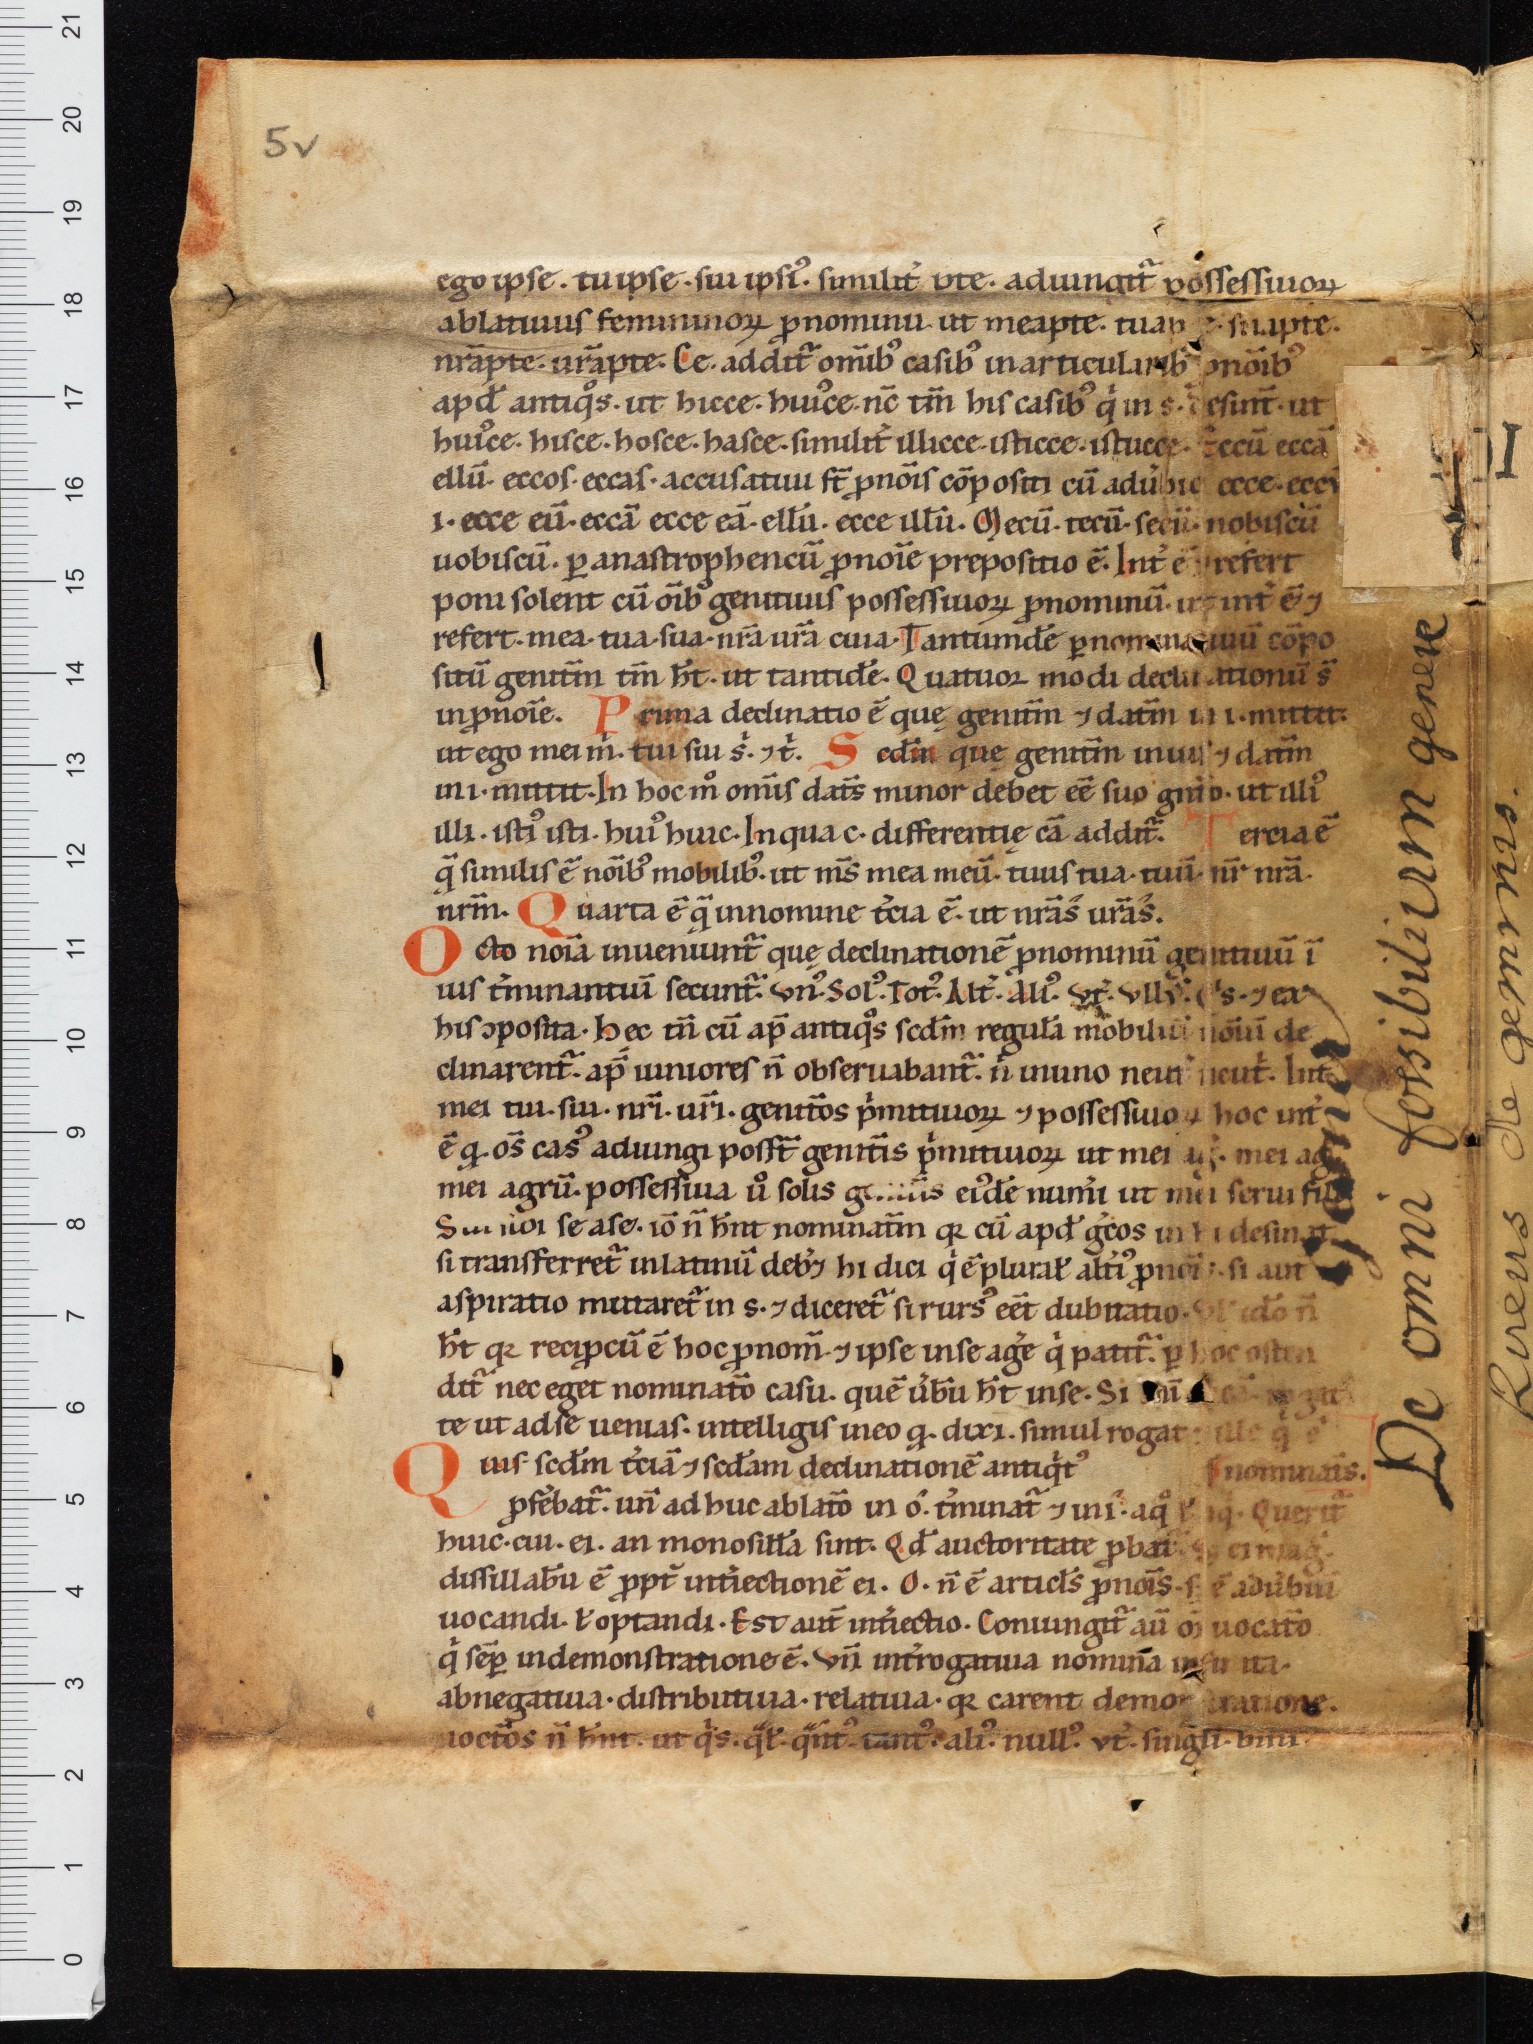 5v
ego ipse. tu ipse. sui ipsiꝰ. similit̓ pte. adiungit᷑ possessiuoꝝ
ablatiuus femininoꝝ ꝓnominū. ut meapte. tuap e. suapte.
nr̄apte. ur̄apte. Ce. addit᷑ om̄ibꝰ casibꝰ in articularibꝰ ꝓnōibꝰ
apd̓ antiqͦs. ut hicce. huiꝰce. nc̄ tm̄ his casibꝰ qͥ in s. desinͭ. ut
huiꝰce. hisce. hosce. hasce. similit̓ illicce. isticce. istucce. Eccū eccā
ellū. eccos. eccas. accusatiui st̄ ꝓnōis cōpositi cū adu̓bio ecce. eccū
i. ecce eū. eccā ecce eā. ellū. ecce illū. Mecū. tecū. secū. nobiscū
uobiscū. ꝑ anastrophen cū ꝓnoīe prepositio ē. Int̓ ē refert
poni solent cū oībꝰ genitiuis possessiuoꝝ ꝓnominū. ut int̓ ē ⁊
refert. mea. tua. sua. nr̄a ur̄a cuia. Tantundē ꝓnominatiuū cōpo
sitū genitm̄ tm̄ ht̄. ut tantidē. Quatuor modi declinationū s̄
in ꝓnoīe. Prima declinatio ē quę genitm̄ ⁊ datm̄ in i. mittit.
ut ego mei m̓. tui sui s̓. ⁊ t̓. Sedm̄ que genitm̄ in ius ⁊ datm̄
in i. mittit. In hoc mͦ omīs datī s minor debet eē suo gnt̓o. ut illiꝰ
illi. istiꝰ isti. huiꝰ huic. In qua c. differentię cā addit᷑. Tercia ē
q̄ similis ē noībꝰ mobilibꝰ. ut ms̄ mea meū. tuus tua. tuū. nr̄ nr̄a.
nrm̄. Quarta ē q̄ in nomine t̓cia ē. ut nr̄as̓ ur̄as̓.
Octo noīa inueniunt᷑ que declinationē ꝓnominū genitiuū ī
ius t̓minantiū secunt᷑. Vnꝰ. Solꝰ. Totꝰ. Alt̓. Aliꝰ. Vt̓. Vllꝰ. ⁊ ex
his ↄposita. Hec tn̄ cū ap̄ antiqͦs scdm̄ regulā mobiliū noīū de
clinarent᷑. ap̄ iuniores n̄ obseruabant᷑. n̓ in uno neut̓ neut̓. Int̓
mei tui. sui. nr̄i. ur̄i. genitōs p̓mitiuoꝝ ⁊ possessiuoꝝ hoc int̓
ē ꝙ. os̄ casꝰ adiungi posst̄ genitīs p̓mitiuoꝝ ut mei ag̓. mei ag
mei agrū. possessiua u̓o solis genitīs eiꝰdē num̓i ut mei serui fili
Sui sibi se a se. iō n̄ hn̄t nominatm̄ qr cū apd̓ g̓cos in hi desinat.
si transferret᷑ in latinū deb̓⁊ hi dici qͥ ē plural̓ alt̓iꝰ ꝓnoīs. si aut
aspiratio mutaret᷑ in s. ⁊ diceret᷑ si rursꝰ eēt dubitatio. idō n̄
ht̄ qr recip̓cū ē hoc ꝓnom̄. ⁊ ipse in se ag̓e qͥ patit᷑. ꝑ hoc osten
dit᷑ nec eget nominatō casu. quē u̓bū ht̄ in se. Si
te ut ad se uenias. intelligis in eo ꝙ. dixi. simul rogat ille qͥ ē
Quis scdm̄ t̓ciā ⁊ scdam declinationē antiqͥtꝰ nominatīs.
ꝓfe̓bat᷑. un̄ adhuc ablatō in o. t̓minat᷑ ⁊ in i. a qͦ ł a q̄. Querit᷑
huic. cui. ei. an monosillā sint. Qd̓ auctoritate ꝓbat᷑.
dissillabū ē ꝓpt̓ int̓iectionē ei. O. n̄ ē articls̄ ꝓnoīs. s̓ ē adu̓biū
uocandi. ł optandi. Est aut̄ int̓iectio. Coniungit᷑ aū oī uocatō
qͥ sēꝑ in demonstratione ē. Vn̄ int̓rogatiua nomīa infinita.
abnegatiua. distributiua. relatiua. qr carent demonstratione.
uoctōs n̄ hn̄t. ut qͥs. qͣł. qͣntꝰ. tantꝰ. aliꝰ. nullꝰ. Vt̓. singlī. bini.
De omni fossibilium genere
Rveus de gemmis.